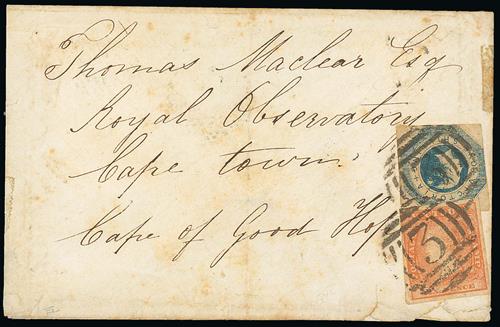 Thomas Maclear Esq
Royal Observatory
Cape town.
Cape of Good Hop
VICTORIA
3
PENCE